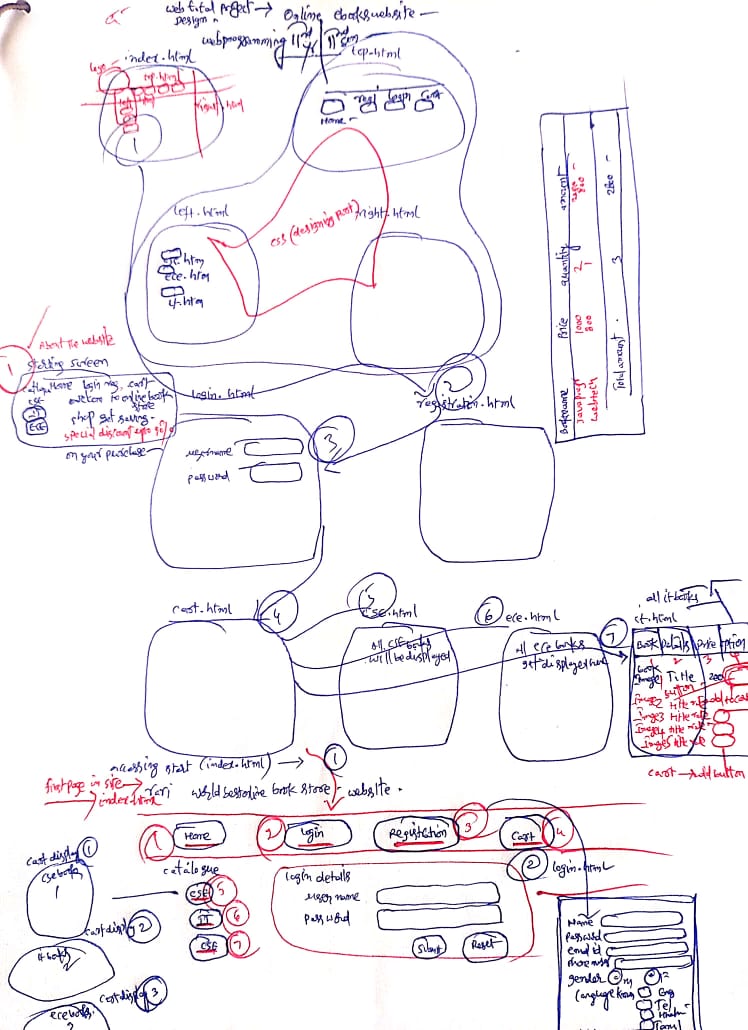 web total project → Online ebooks website -
Design -
webprogramming IInd yr IInd sem
index.html
logo
top.html
left
right.html
top.html
regi login Cart
Home -
left.html
right.html
css (designing part)
cse.htm
ece.htm
it.htm
Bookname Price quantity amount
Java prog 1000 2
webtech 800 1 800
Total amount 3 2800
About the website
1
starting screen
Home login reg, cart
welcome to online book
store
IT
ECE
shop get saving -
special discount
on your purchase
login.html
2
registration.html
3
username
password
cart.html
4
5
cse.html
all CSE books
will be displayed
6
ece.html
all ece books
get displayed here
7
all it books
it.html
Book Details Price option
2 3
book
image Title 200
button
Image2 title
Image3 title
Image4 title
Image5 title
add to cart
cart → add button
accessing start (index.html) →
1
first page in site →
index.html
world best online book store - website.
1 Home
2 Login
Registration 3
Cart 4
cart display 1
cse books
1
catalogue
CSE 5
IT 6
CSE 7
cart display 2
it books
2
cart display 3
ece books.
2 login.html
login details
user name
password
Submit
Reset
Name
Password
email id
phone num
gender m F
Language known Eng
Tel
Hindi
Tamil